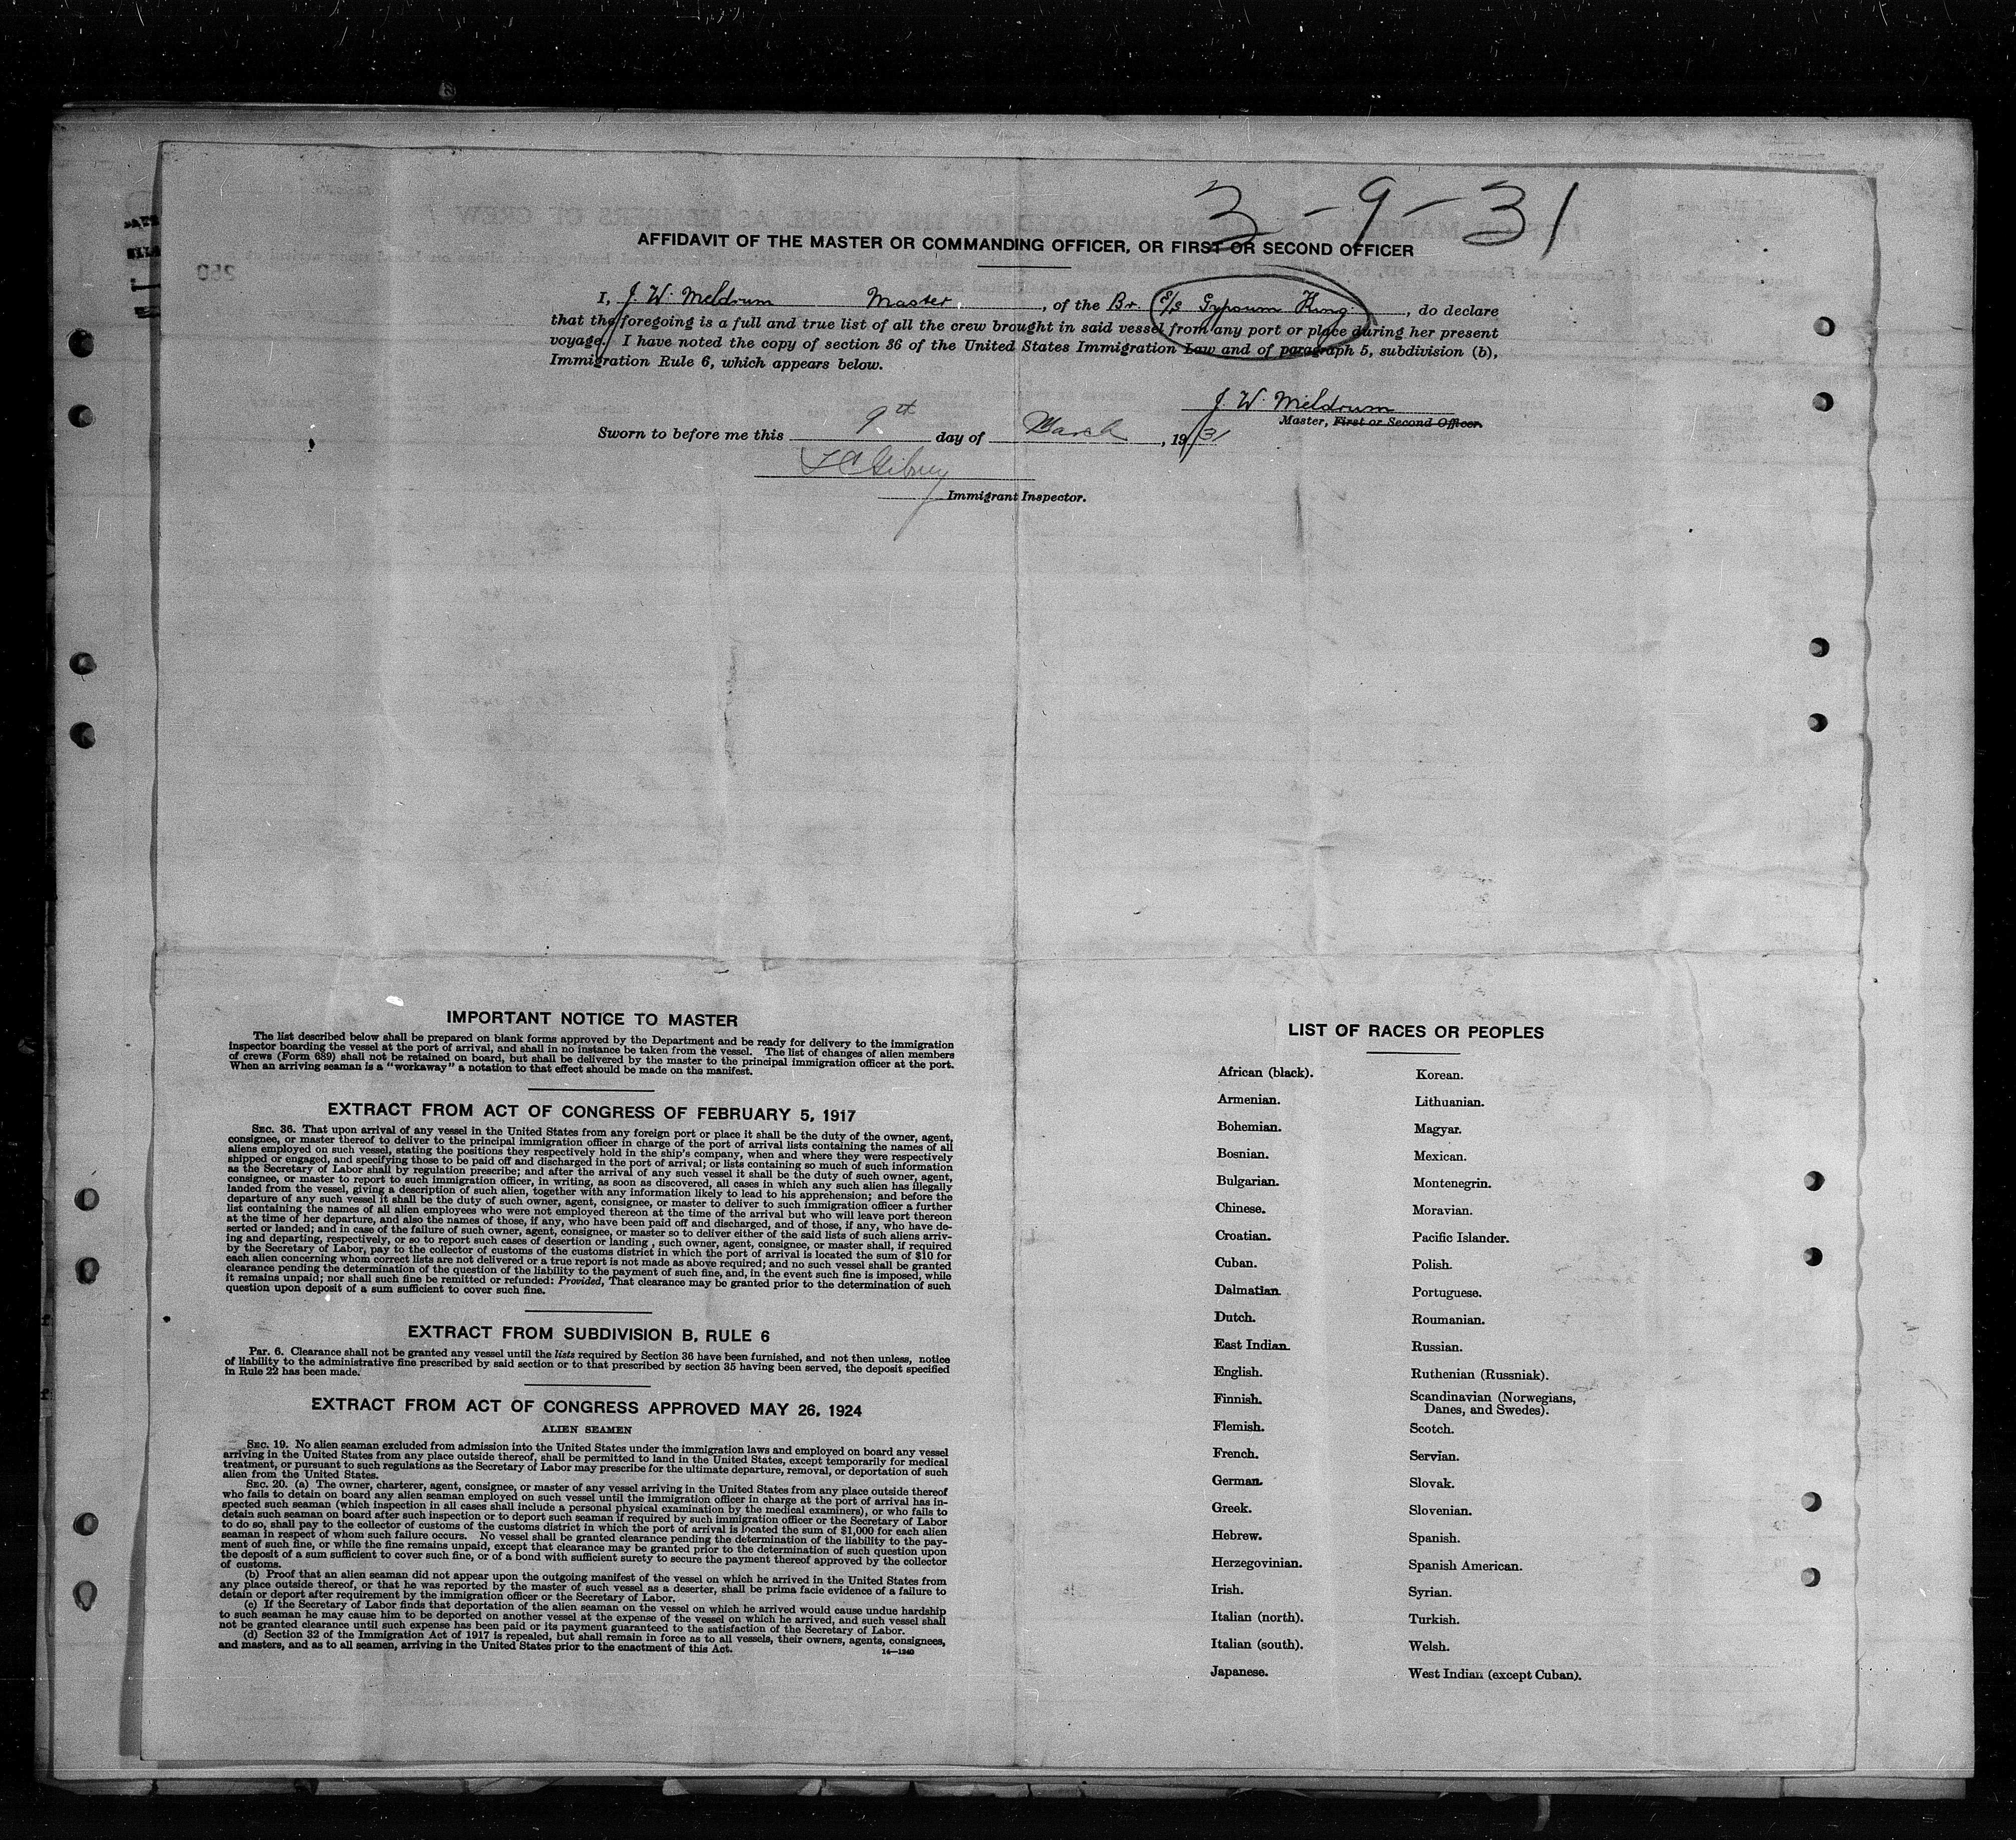 3-9-31
AFFIDAVIT OF THE MASTER OR COMMANDING OFFICER, OR FIRST OR SECOND OFFICER
I, J. W. Meldrum Master, of the Br. S/S Gypsum King, do declare
that the foregoing is a full and true list of all the crew brought in said vessel from any port or place during her present
voyage. I have noted the copy of section 36 of the United States Immigration Law and of paragraph 5, subdivision (b),
Immigration Rule 6, which appears below.
J. W. Meldrum
Master, First or Second Officer.
Sworn to before me this 9th day of March, 1931
Immigrant Inspector.
260
IMPORTANT NOTICE TO MASTER
The list described below shall be prepared on blank forms approved by the Department and be ready for delivery to the immigration
inspector boarding the vessel at the port of arrival, and shall in no instance be taken from the vessel. The list of changes of alien members
of crews (Form 689) shall not be retained on board, but shall be delivered by the master to the principal immigration officer at the port.
When an arriving seaman is a "workaway" a notation to that effect should be made on the manifest.
EXTRACT FROM ACT OF CONGRESS OF FEBRUARY 5, 1917
SEC. 36. That upon arrival of any vessel in the United States from any foreign port or place it shall be the duty of the owner, agent,
consignee, or master thereof to deliver to the principal immigration officer in charge of the port of arrival lists containing the names of all
aliens employed on such vessel, stating the positions they respectively hold in the ship's company, when and where they were respectively
shipped or engaged, and specifying those to be paid off and discharged in the port of arrival; or lists containing so much of such information
as the Secretary of Labor shall by regulation prescribe; and after the arrival of any such vessel it shall be the duty of such owner, agent,
consignee, or master to report to such immigration officer, in writing, as soon as discovered, all cases in which any such alien has illegally
landed from the vessel, giving a description of such alien, together with any information likely to lead to his apprehension; and before the
departure of any such vessel it shall be the duty of such owner, agent, consignee, or master to deliver to such immigration officer a further
list containing the names of all alien employees who were not employed thereon at the time of the arrival but who will leave port thereon
at the time of her departure, and also the names of those, if any, who have been paid off and discharged, and of those, if any, who have de-
serted or landed; and in case of the failure of such owner, agent, consignee, or master so to deliver either of the said lists of such aliens arriv-
ing and departing, respectively, or so to report such cases of desertion or landing, such owner, agent, consignee, or master shall, if required
by the Secretary of Labor, pay to the collector of customs of the customs district in which the port of arrival is located the sum of $10 for
each alien concerning whom correct lists are not delivered or a true report is not made as above required; and no such vessel shall be granted
clearance pending the determination of the question of the liability to the payment of such fine, and, in the event such fine is imposed, while
it remains unpaid; nor shall such fine be remitted or refunded: Provided, That clearance may be granted prior to the determination of such
question upon deposit of a sum sufficient to cover such fine.
EXTRACT FROM SUBDIVISION B, RULE 6
Par. 6. Clearance shall not be granted any vessel until the lists required by Section 36 have been furnished, and not then unless, notice
of liability to the administrative fine prescribed by said section or to that prescribed by section 35 having been served, the deposit specified
in Rule 22 has been made.
EXTRACT FROM ACT OF CONGRESS APPROVED MAY 26, 1924
ALIEN SEAMEN
SEC. 19. No alien seaman excluded from admission into the United States under the immigration laws and employed on board any vessel
arriving in the United States from any place outside thereof, shall be permitted to land in the United States, except temporarily for medical
treatment, or pursuant to such regulations as the Secretary of Labor may prescribe for the ultimate departure, removal, or deportation of such
alien from the United States.
SEC. 20. (a) The owner, charterer, agent, consignee, or master of any vessel arriving in the United States from any place outside thereof
who fails to detain on board any alien seaman employed on such vessel until the immigration officer in charge at the port of arrival has in-
spected such seaman (which inspection in all cases shall include a personal physical examination by the medical examiners), or who fails to
detain such seaman on board after such inspection or to deport such seaman if required by such immigration officer or the Secretary of Labor
to do so, shall pay to the collector of customs of the customs district in which the port of arrival is located the sum of $1,000 for each alien
seaman in respect of whom such failure occurs. No vessel shall be granted clearance pending the determination of the liability to the pay-
ment of such fine, or while the fine remains unpaid, except that clearance may be granted prior to the determination of such question upon
the deposit of a sum sufficient to cover such fine, or of a bond with sufficient surety to secure the payment thereof approved by the collector
of customs.
(b) Proof that an alien seaman did not appear upon the outgoing manifest of the vessel on which he arrived in the United States from
any place outside thereof, or that he was reported by the master of such vessel as a deserter, shall be prima facie evidence of a failure to
detain or deport after requirement by the immigration officer or the Secretary of Labor.
(c) If the Secretary of Labor finds that deportation of the alien seaman on the vessel on which he arrived would cause undue hardship
to such seaman he may cause him to be deported on another vessel at the expense of the vessel on which he arrived, and such vessel shall
not be granted clearance until such expense has been paid or its payment guaranteed to the satisfaction of the Secretary of Labor.
(d) Section 32 of the Immigration Act of 1917 is repealed, but shall remain in force as to all vessels, their owners, agents, consignees,
and masters, and as to all seamen, arriving in the United States prior to the enactment of this Act.
14—1240
LIST OF RACES OR PEOPLES
African (black).
Armenian.
Bohemian.
Bosnian.
Bulgarian.
Chinese.
Croatian.
Cuban.
Dalmatian.
Dutch.
East Indian.
English.
Finnish.
Flemish.
French.
German.
Greek.
Hebrew.
Herzegovinian.
Irish.
Italian (north).
Italian (south).
Japanese.
Korean.
Lithuanian.
Magyar.
Mexican.
Montenegrin.
Moravian.
Pacific Islander.
Polish.
Portuguese.
Roumanian.
Russian.
Ruthenian (Russniak).
Scandinavian (Norwegians,
Danes, and Swedes).
Scotch.
Servian.
Slovak.
Slovenian.
Spanish.
Spanish American.
Syrian.
Turkish.
Welsh.
West Indian (except Cuban).